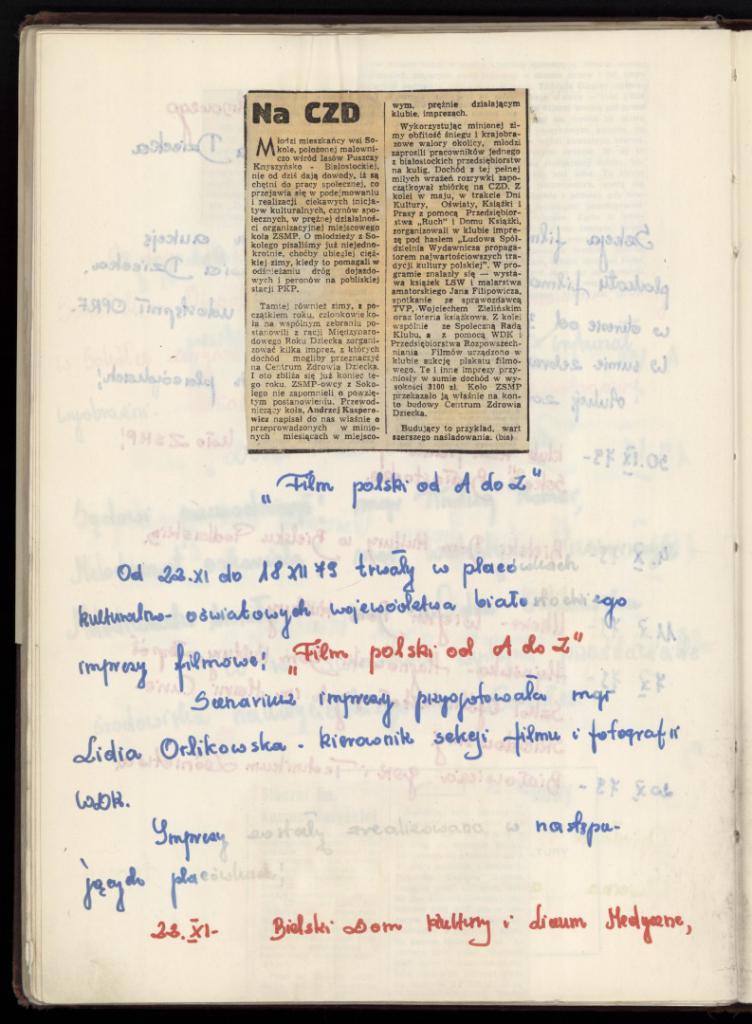 Na CZD
Młodzi mieszkańcy wsi So-
kole, położonej malowni-
czo wśród lasów Puszczy
Knyszyńsko - Białostockiej,
nie od dziś dają dowody, iż są
chętni do pracy społecznej, co
przejawia się w podejmowaniu
i realizacji ciekawych inicja-
tyw kulturalnych, czynów spo-
łecznych, w prężnej działalno-
ści organizacyjnej miejscowego
koła ZSMP. O młodzieży z So-
kolego pisaliśmy już niejedno-
krotnie, choćby ubiegłej cięż-
kiej zimy, kiedy to pomagali w
odśnieżaniu dróg dojazdo-
wych i peronów na pobliskiej
stacji PKP.
Tamtej również zimy, z po-
czątkiem roku, członkowie ko-
ła na wspólnym zebraniu po-
stanowili z racji Międzynaro-
dowego Roku Dziecka zorgani-
zować kilka imprez, z których
dochód mogliby przeznaczyć
na Centrum Zdrowia Dziecka.
I oto zbliża się już koniec te-
go roku. ZSMP-owcy z Soko-
lego nie zapomnieli o pewnym
tym postanowieniu. Przewod-
niczący koła, Andrzej Kaspero-
wicz napisał do nas właśnie o
przeprowadzonych w minio-
nych miesiącach w miejsco-
wym, prężnie działającym
klubie, imprezach.
Wykorzystując minionej zi-
my obfitość śniegu i krajobra-
zowe walory okolicy, młodzi
zaprosili pracowników jednego
z białostockich przedsiębiorstw
na kulig. Dochód z tej pełnej
miłych wrażeń rozrywki zapo-
czątkował zbiórkę na CZD. Z
kolei w maju, w trakcie Dni
Kultury, Oświaty, Książki i
Prasy z pomocą Przedsiębior-
stwa „Ruch” i Domu Książki,
zorganizowali w klubie impre-
zę pod hasłem „Ludowa Spół-
dzielnia Wydawnicza propaga-
torem najwartościowszych tra-
dycji kultury polskiej”. W pro-
gramie znalazły się — wysta-
wa książek LSW i malarstwa
amatorskiego Jana Filipowicza,
spotkanie ze sprawozdawcą
TVP, Wojciechem Zielińskim
oraz loteria książkowa. Z kolei
wspólnie ze Społeczną Radą
Klubu, a z pomocą WDK i
Przedsiębiorstwa Rozpowszech-
niania Filmów urządzono w
klubie aukcję plakatu filmo-
wego. Te i inne imprezy przy-
niosły w sumie dochód w wy-
sokości 3100 zł. Koło ZSMP
przekazało ją właśnie na kon-
to budowy Centrum Zdrowia
Dziecka.
Budujący to przykład, wart
szerszego naśladowania. (bis)
„Film polski od A do Z”
Od 22.XI do 18 XII 79 trwały w placówkach
kulturalno-oświatowych województwa białostockiego
imprezy filmowe: „Film polski od A do Z”
Scenariusz imprezy przygotowała mgr
Lidia Orlikowska - kierownik sekcji filmu i fotografii
WDK.
Imprezy zostały zrealizowane w następu-
jących placówkach:
22.XI- Bielski Dom Kultury i Liceum Medyczne,